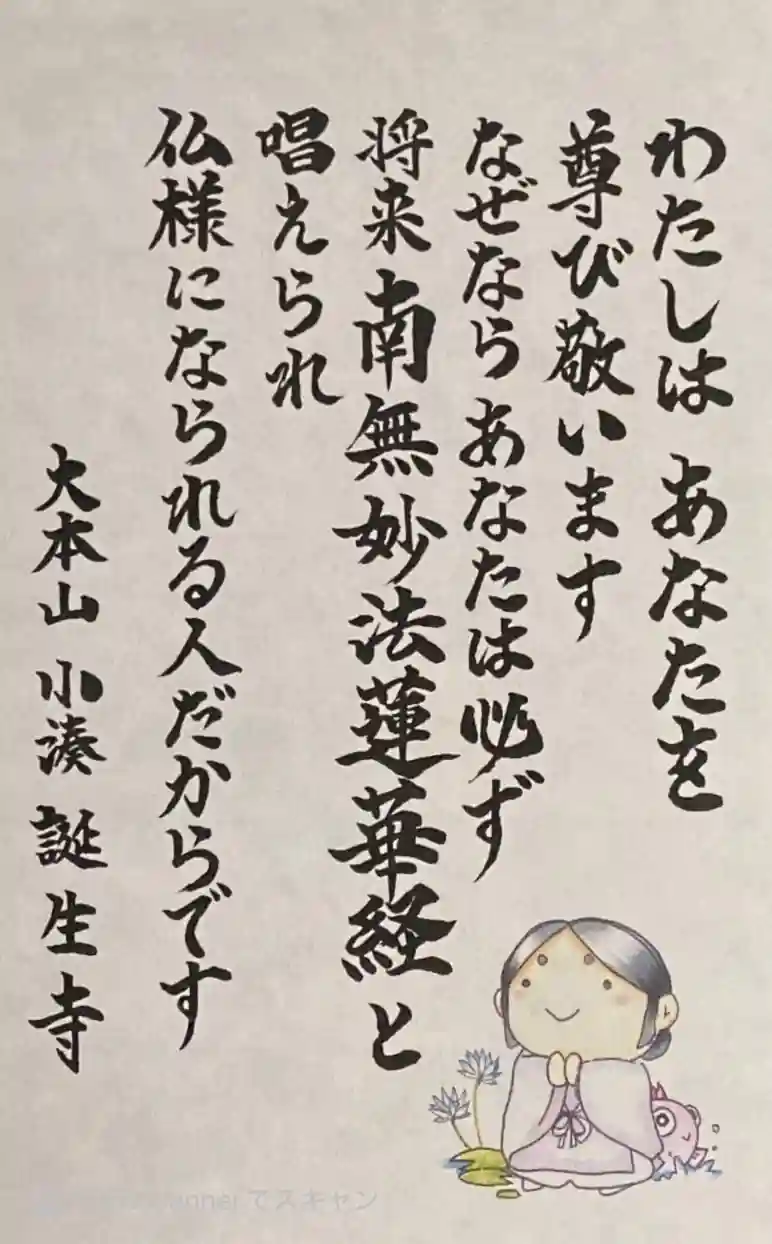 わたしは あなたを
尊び敬います
なぜなら あなたは必ず
将来 南無妙法蓮華経と
唱えられ
仏様になられる人だからです
大本山 小湊 誕生寺
でスキャン